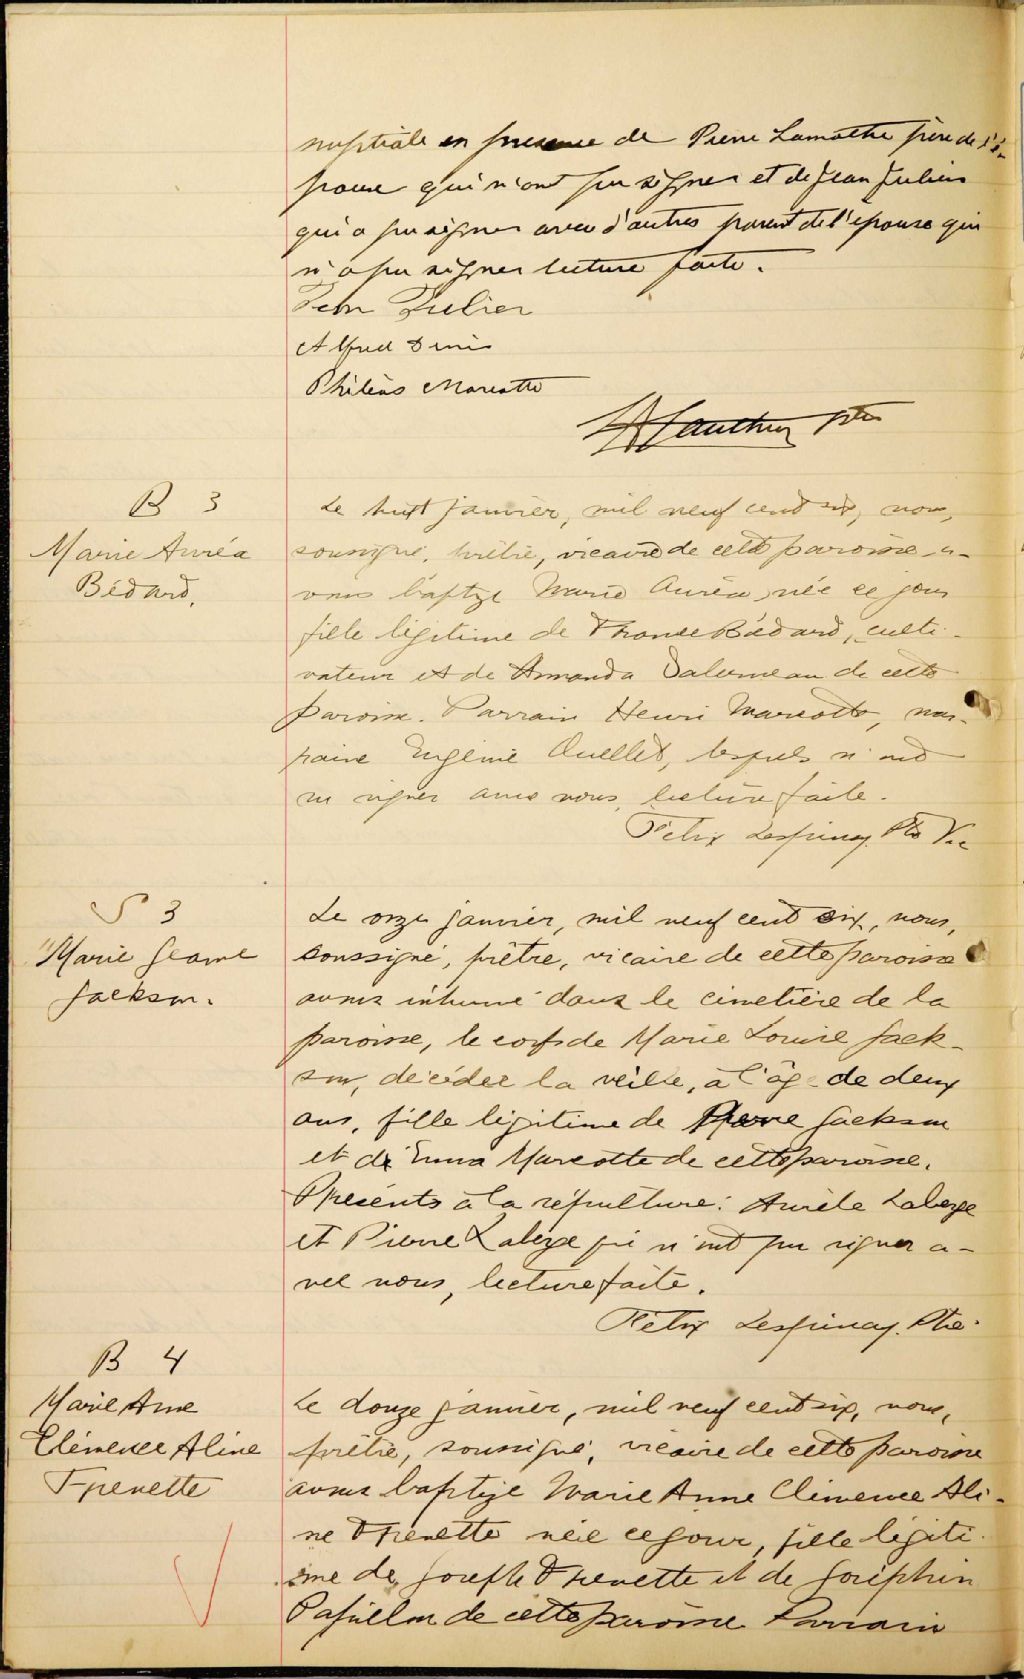 nuptiale en presence de Pierre Lamothe père de l'é-
pouse qui n'ont pu signer et de Jean Julien
qui a pu signer avec d'autres parent de l'épouse qui
n'a pu signer lecture faite.
Jean Julien
Alfred Denis
Philéas Marcotte
Gauthier ptre
B 3
Marie Auréa
Bédard.
Le huit janvier, mil neuf cent six, nous,
soussigné, prêtre, vicaire de cette paroisse a-
vons baptizé Marie Auréa, née ce jour
fille légitime de Bédard, culti-
vateur et de Amanda de cette
paroisse. Parrain Henri Marcotte, mar-
raine Eugénie Ouellet, lesquels n'ont
su signer avec nous, lecture faite.
Félix Lespinay Ptre Vic
S 3
Marie Jeanne
Jackson.
Le onze janvier, mil neuf cent six, nous,
soussigné, prêtre, vicaire de cette paroisse
avons inhumé dans le cimetière de la
paroisse, le corps de Marie Louise Jack-
son, décédée la veille, à l'âge de deux
ans, fille légitime de Pierre Jackson
et de Emma Marcotte de cette paroisse.
Présents à la sépulture: Aurèle Laberge
et Pierre Laberge qui n'ont pu signer a-
vec nous, lecture faite.
Félix Lespinay. Ptre.
B 4
Marie Anne
Clémence Aline
Frenette
Le douze janvier, mil neuf cent six, nous,
prêtre, soussigné, vicaire de cette paroisse
avons baptizé Marie Anne Clémence Ali-
ne Frenette née ce jour, fille légiti-
me de Joseph Frenette et de Joséphin
Papillon de cette paroisse. Parrain